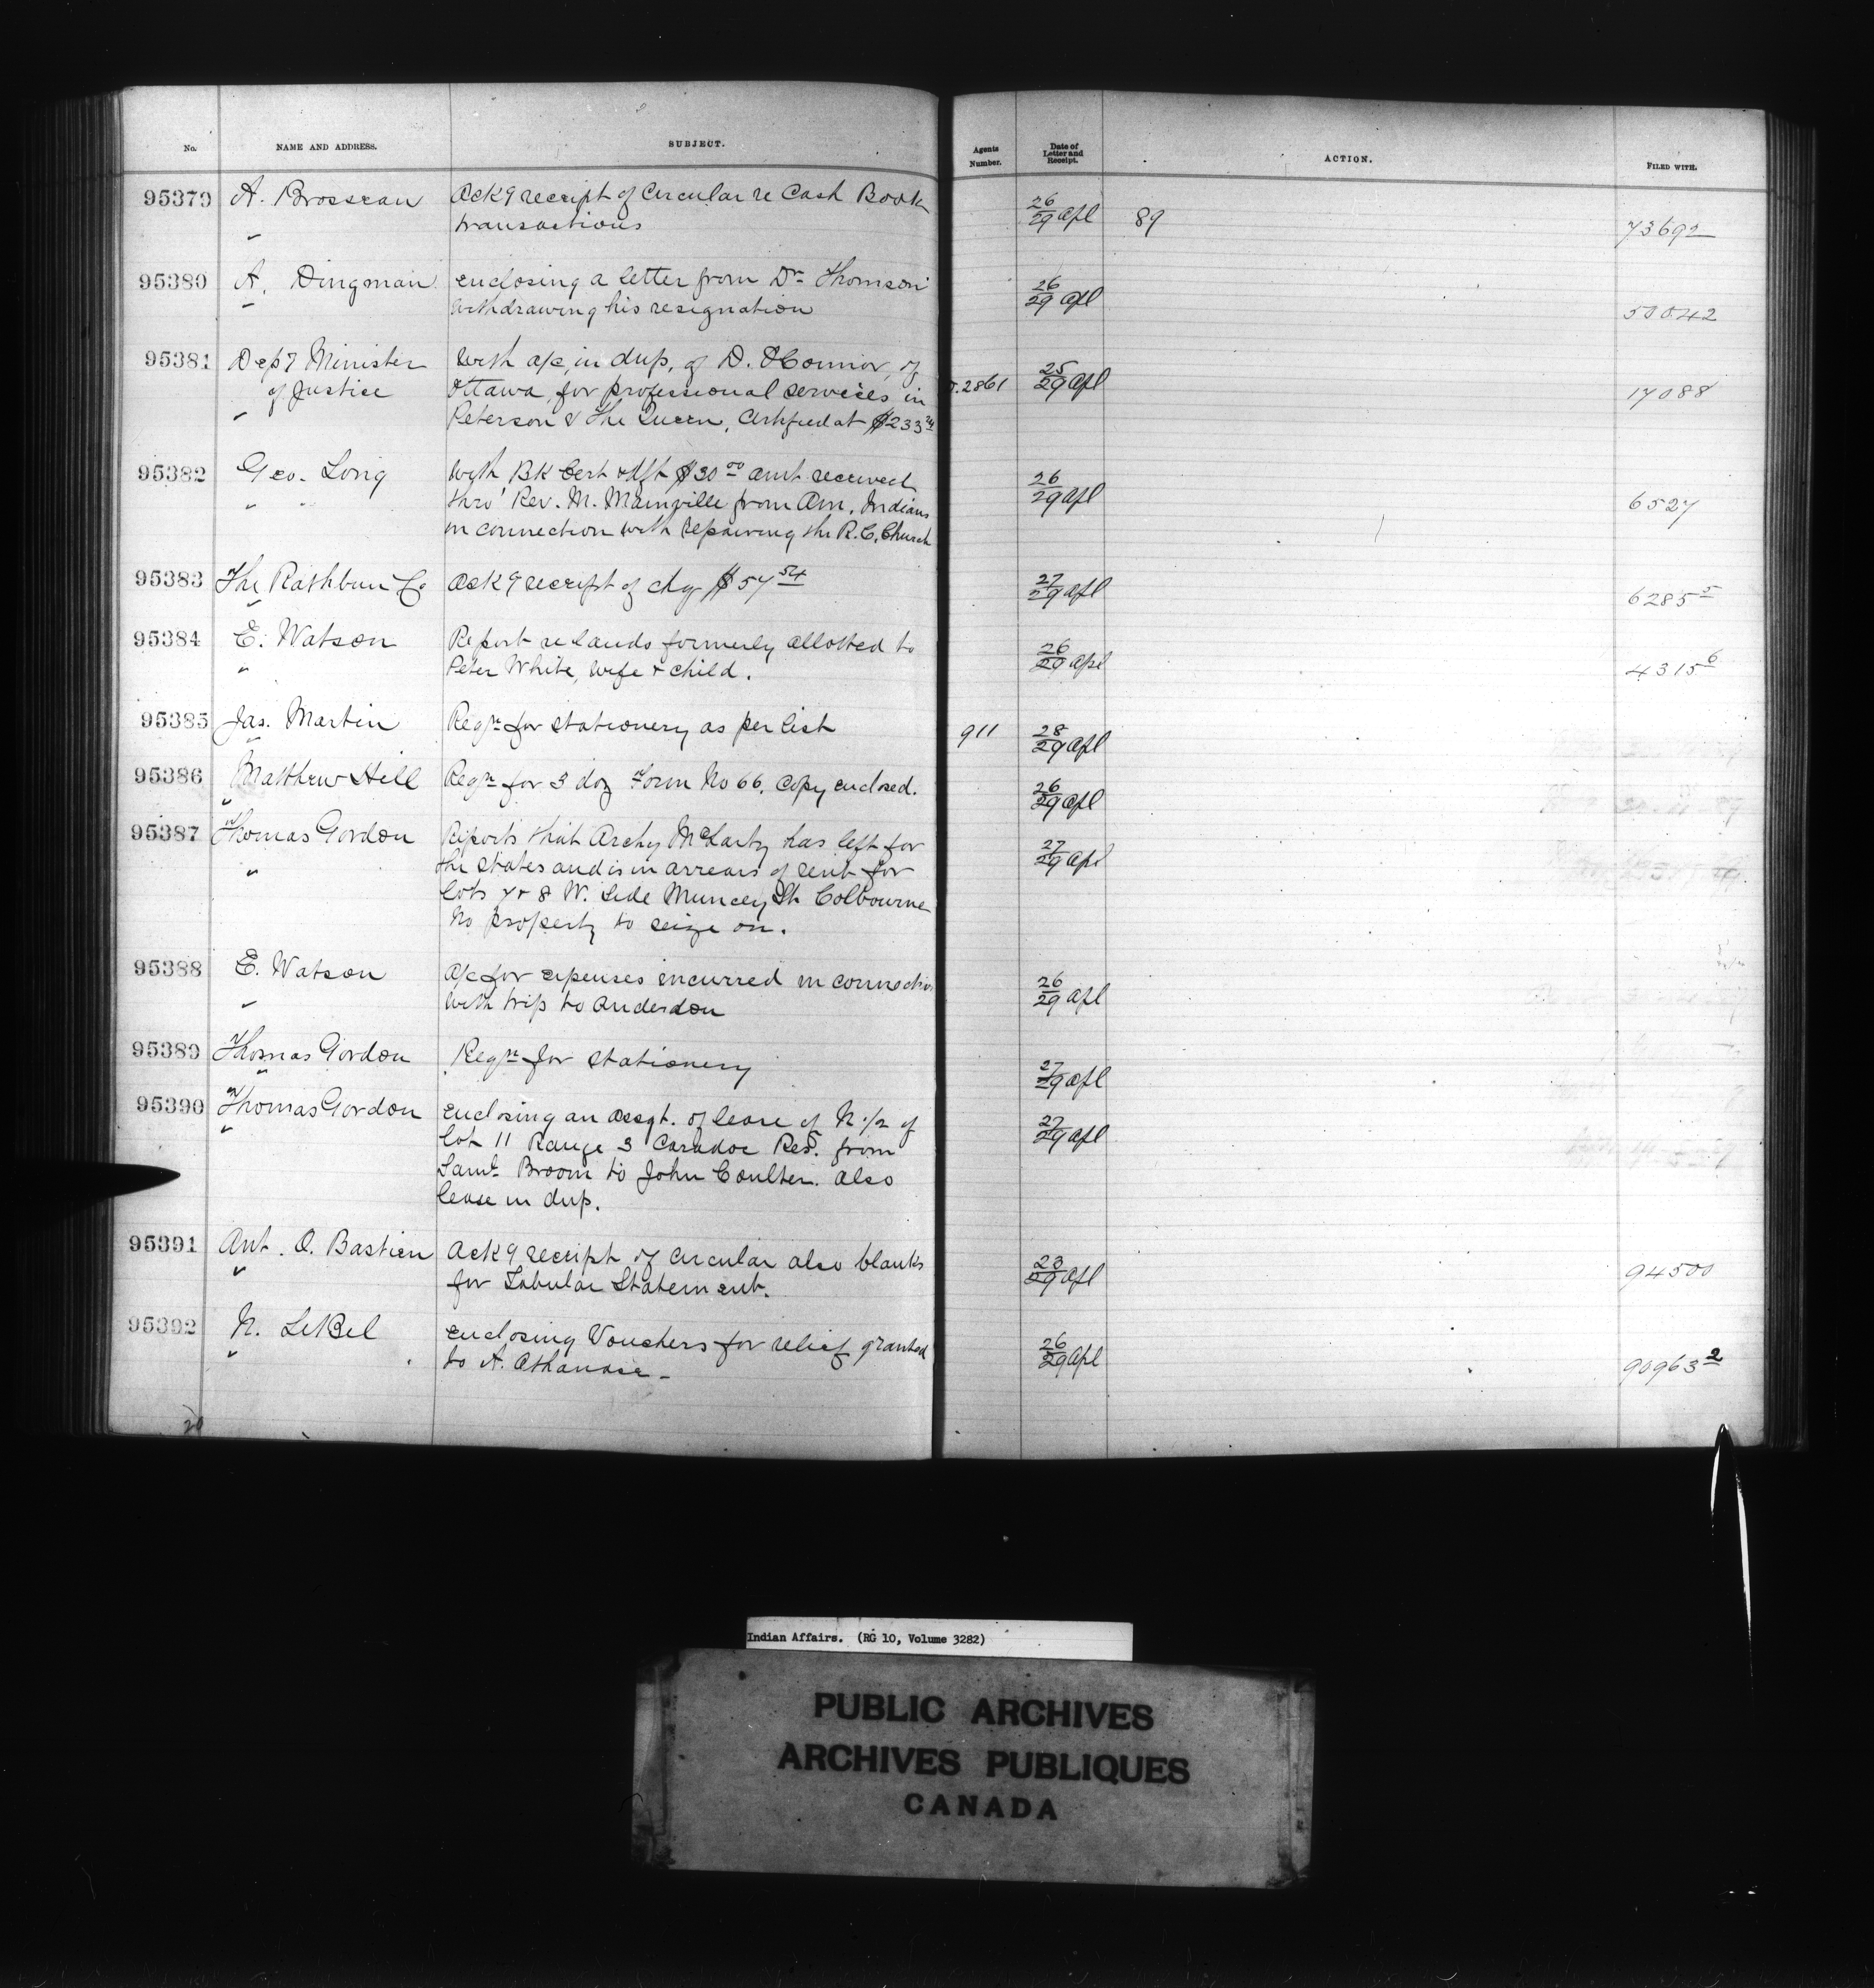 No. NAME AND ADDRESS. SUBJECT. Agents Number. Date of Letter and Receipt. ACTION. FILED WITH.
95379 A. Brosseau Ackg receipt of Circular re Cash Book 26/29 Apl 89 73692
" transactions
95380 A. Dingman enclosing a letter from Dr Thomson 26/29 Apl 50042
" withdrawing his resignation
95381 Dept Minister With a/c, in dup, of D. O'Connor, of 25/29 Apl 17088
of Justice Ottawa, for professional services in 2861
" Peterson & The Queen, Certified at $233
95382 Geo. Long With BK Cert & dft $30 00 amt received 26/29 Apl 6527
" " thro' Rev. M. Mainville from Am. Indians
in connection with repairing the R.C. Church
95383 The Rathbun Co Ackg receipt of chq $57 54 27/29 Apl 6285 5
"
95384 E. Watson Report re lands formerly allotted to 26/29 Apl 4315 6
" Peter White, wife & child.
95385 Jas. Martin Reqn for stationery as per list 911 28/29 Apl
"
95386 Matthew Hill Reqn for 3 doz Form No 66. Copy enclosed. 26/29 Apl
"
95387 Thomas Gordon Reports that Archy McLarty has left for 27/29 Apl
" the states and is in arrears of rent for
Lots 7 & 8 W. Side Muncey St. Colbourne
No property to seize on.
95388 E. Watson A/c for expenses incurred in connection 26/29 Apl
" with trip to Anderdon
95389 Thomas Gordon Reqn for stationery 27/29 Apl
"
95390 Thomas Gordon enclosing an assgt. of lease of N. 1/2 of 27/29 Apl
" Lot 11 Range 3 Caradoc Res. from
Saml. Broom to John Coulter. also
lease in dup.
95391 Ant. O. Bastien Ackg receipt of circular also blanks 23/29 Apl 94500
" for Tabular Statement.
95392 N. LeBel enclosing Vouchers for relief granted 26/29 Apl 90963 2
" to A. Athanase -
Indian Affairs. (RG 10, Volume 3282)
PUBLIC ARCHIVES
ARCHIVES PUBLIQUES
CANADA